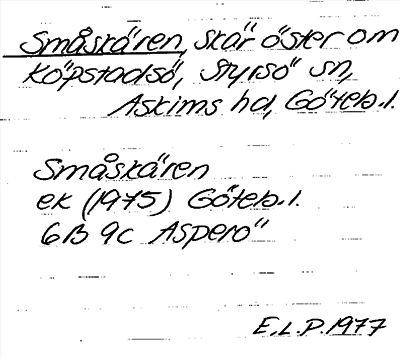 Småskären, skär öster om
Köpstadsö, Styrsö sn,
Askims hd, Göteb.l.
Småskären
ek (1975) Göteb.l.
6B 9c Asperö
E.L.P. 1977